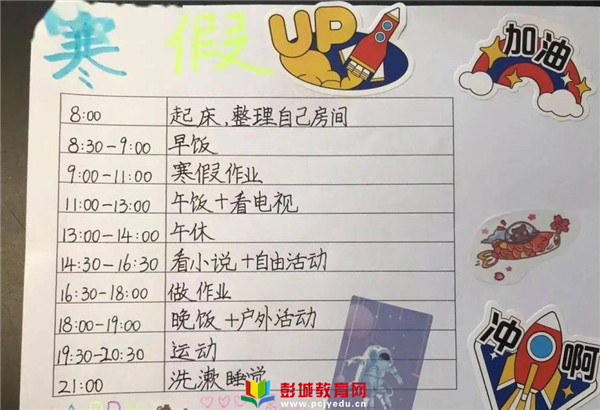 寒假
UP
加油
8:00 起床、整理自己房间
8:30-9:00 早饭
9:00-11:00 寒假作业
11:00-13:00 午饭+看电视
13:00-14:00 午休
14:30-16:30 看小说+自由活动
16:30-18:00 做作业
18:00-19:00 晚饭+户外活动
19:30-20:30 运动
21:00 洗漱睡觉
冲啊
彭城教育网
www.pcjyedu.cn